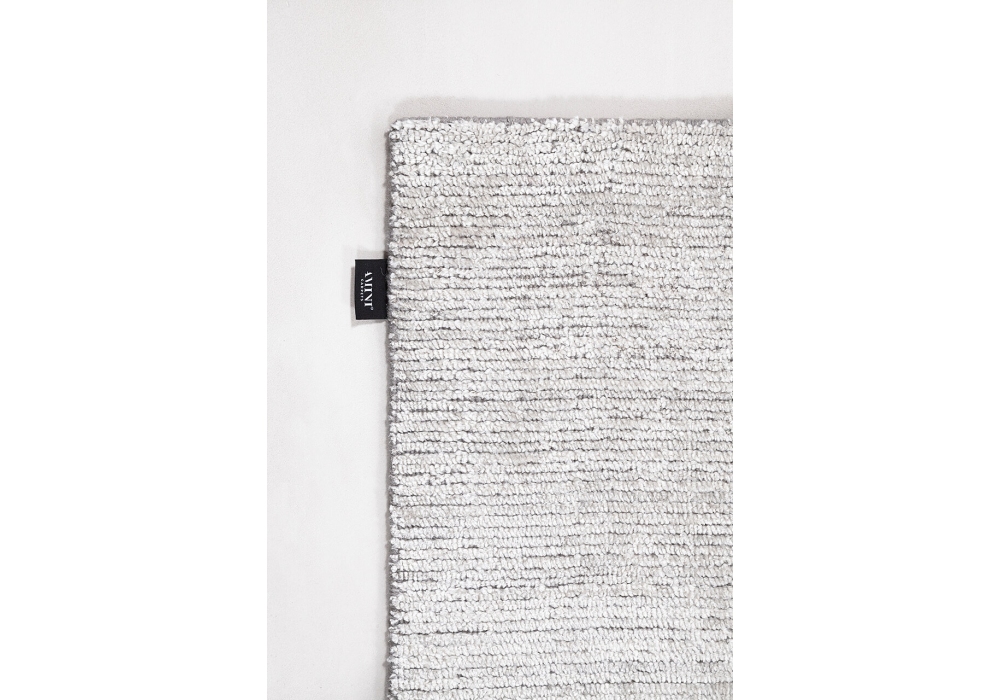 AMINI
CARPETS